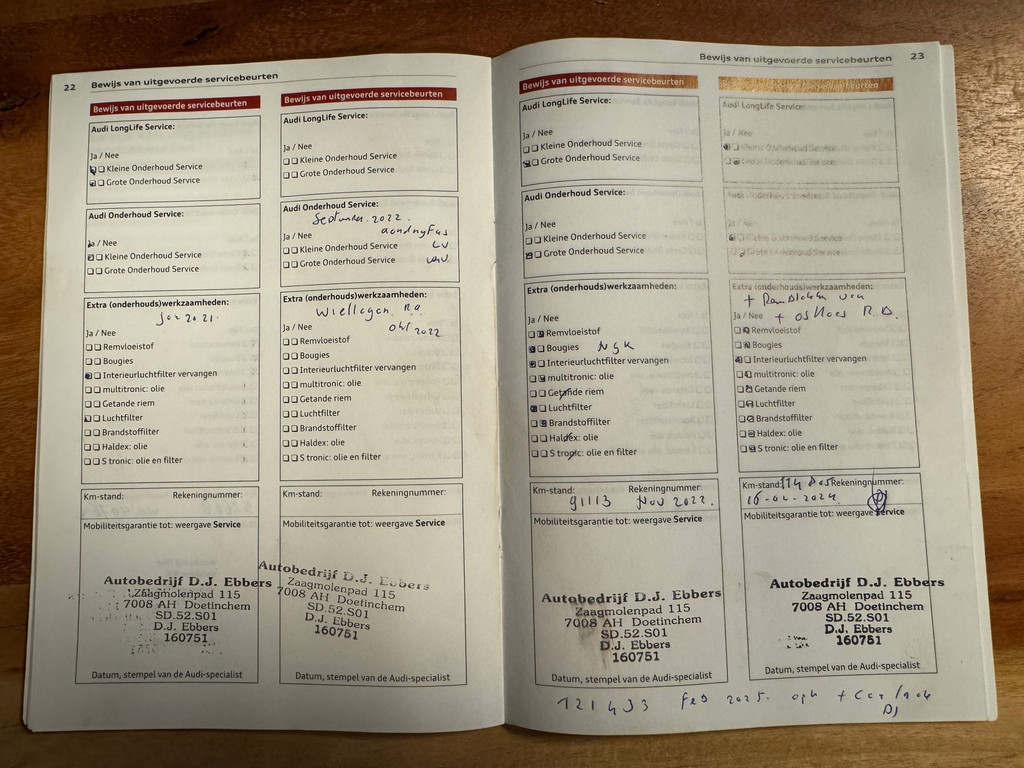 22 Bewijs van uitgevoerde servicebeurten
Bewijs van uitgevoerde servicebeurten
Audi LongLife Service:
Ja / Nee
Kleine Onderhoud Service
Grote Onderhoud Service
Audi Onderhoud Service:
Ja / Nee
Kleine Onderhoud Service
Grote Onderhoud Service
Extra (onderhouds)werkzaamheden:
Jan 2021.
Ja / Nee
Remvloeistof
Bougies
Interieurluchtfilter vervangen
multitronic: olie
Getande riem
Luchtfilter
Brandstoffilter
Haldex: olie
S tronic: olie en filter
Km-stand: Rekeningnummer:
Mobiliteitsgarantie tot: weergave Service
Autobedrijf D.J. Ebbers
Zaagmolenpad 115
7008 AH Doetinchem
SD.52.S01
D.J. Ebbers
160751
Datum, stempel van de Audi-specialist
Bewijs van uitgevoerde servicebeurten
Audi LongLife Service:
Ja / Nee
Kleine Onderhoud Service
Grote Onderhoud Service
Audi Onderhoud Service:
September 2022.
Ja / Nee aandryfas
Kleine Onderhoud Service LV
Grote Onderhoud Service
Extra (onderhouds)werkzaamheden:
Wiellager R.A.
Ja / Nee okt 2022
Remvloeistof
Bougies
Interieurluchtfilter vervangen
multitronic: olie
Getande riem
Luchtfilter
Brandstoffilter
Haldex: olie
S tronic: olie en filter
Km-stand: Rekeningnummer:
Mobiliteitsgarantie tot: weergave Service
Autobedrijf D.J. Ebbers
Zaagmolenpad 115
7008 AH Doetinchem
SD.52.S01
D.J. Ebbers
160751
Datum, stempel van de Audi-specialist
Bewijs van uitgevoerde servicebeurten 23
Bewijs van uitgevoerde servicebeurten
Audi LongLife Service:
Ja / Nee
Kleine Onderhoud Service
Grote Onderhoud Service
Audi Onderhoud Service:
Ja / Nee
Kleine Onderhoud Service
Grote Onderhoud Service
Extra (onderhouds)werkzaamheden:
Ja / Nee
Remvloeistof
Bougies NGK
Interieurluchtfilter vervangen
multitronic: olie
Getande riem
Luchtfilter
Brandstoffilter
Haldex: olie
S tronic: olie en filter
Km-stand: Rekeningnummer:
91113 Nov 2022.
Mobiliteitsgarantie tot: weergave Service
Autobedrijf D.J. Ebbers
Zaagmolenpad 115
7008 AH Doetinchem
SD.52.S01
D.J. Ebbers
160751
Datum, stempel van de Audi-specialist
Audi LongLife Service:
Ja / Nee
Kleine Onderhoud Service
Grote Onderhoud Service
Ja / Nee
Kleine Onderhoud Service
Grote Onderhoud Service
Extra (onderhouds)werkzaamheden:
+ Remblokken voor
Ja / Nee
Remvloeistof
Bougies
Interieurluchtfilter vervangen
multitronic: olie
Getande riem
Luchtfilter
Brandstoffilter
Haldex: olie
S tronic: olie en filter
Km-stand: Rekeningnummer:
16-02-2024.
Mobiliteitsgarantie tot: weergave Service
Autobedrijf D.J. Ebbers
Zaagmolenpad 115
7008 AH Doetinchem
SD.52.S01
D.J. Ebbers
160751
Datum, stempel van de Audi-specialist
Feb 2025. apk +
DJ